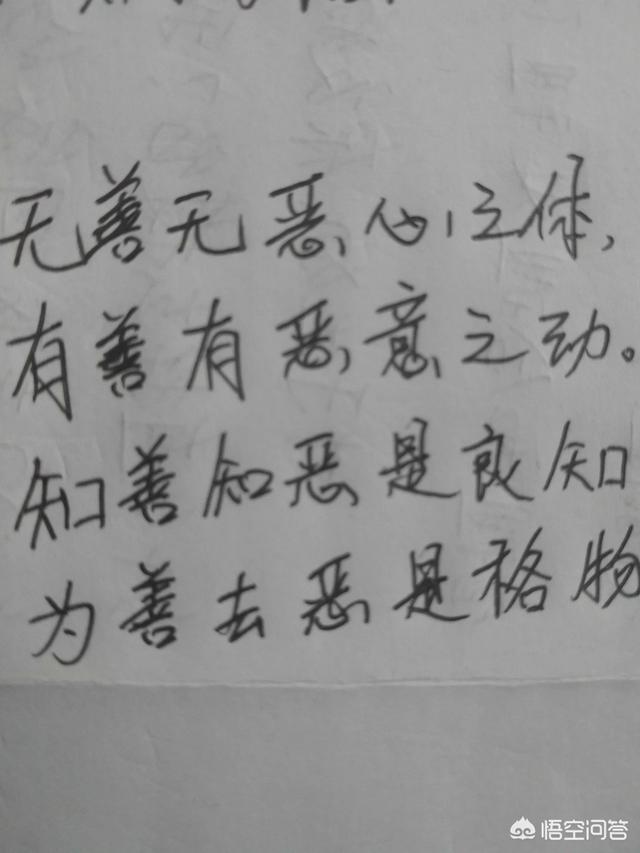 无善无恶心之体，
有善有恶意之动。
知善知恶是良知
为善去恶是格物
悟空问答